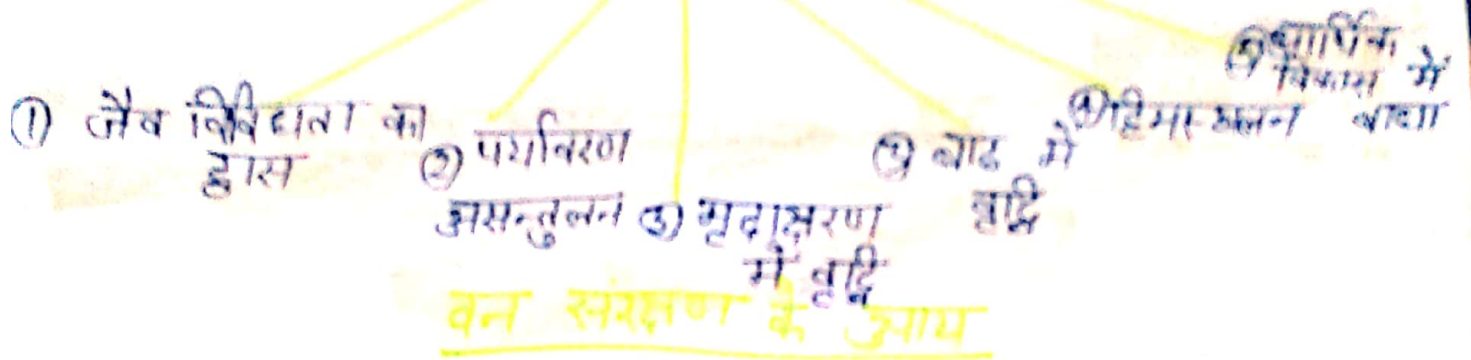 ① जैव विविधता का
ह्रास
② पर्यावरण
असन्तुलन
③ मृदाक्षरण
में वृद्धि
④ बाढ़ में
वृद्धि
हिमस्खलन
आर्थिक
विकास में
बाधा
वन संरक्षण के उपाय